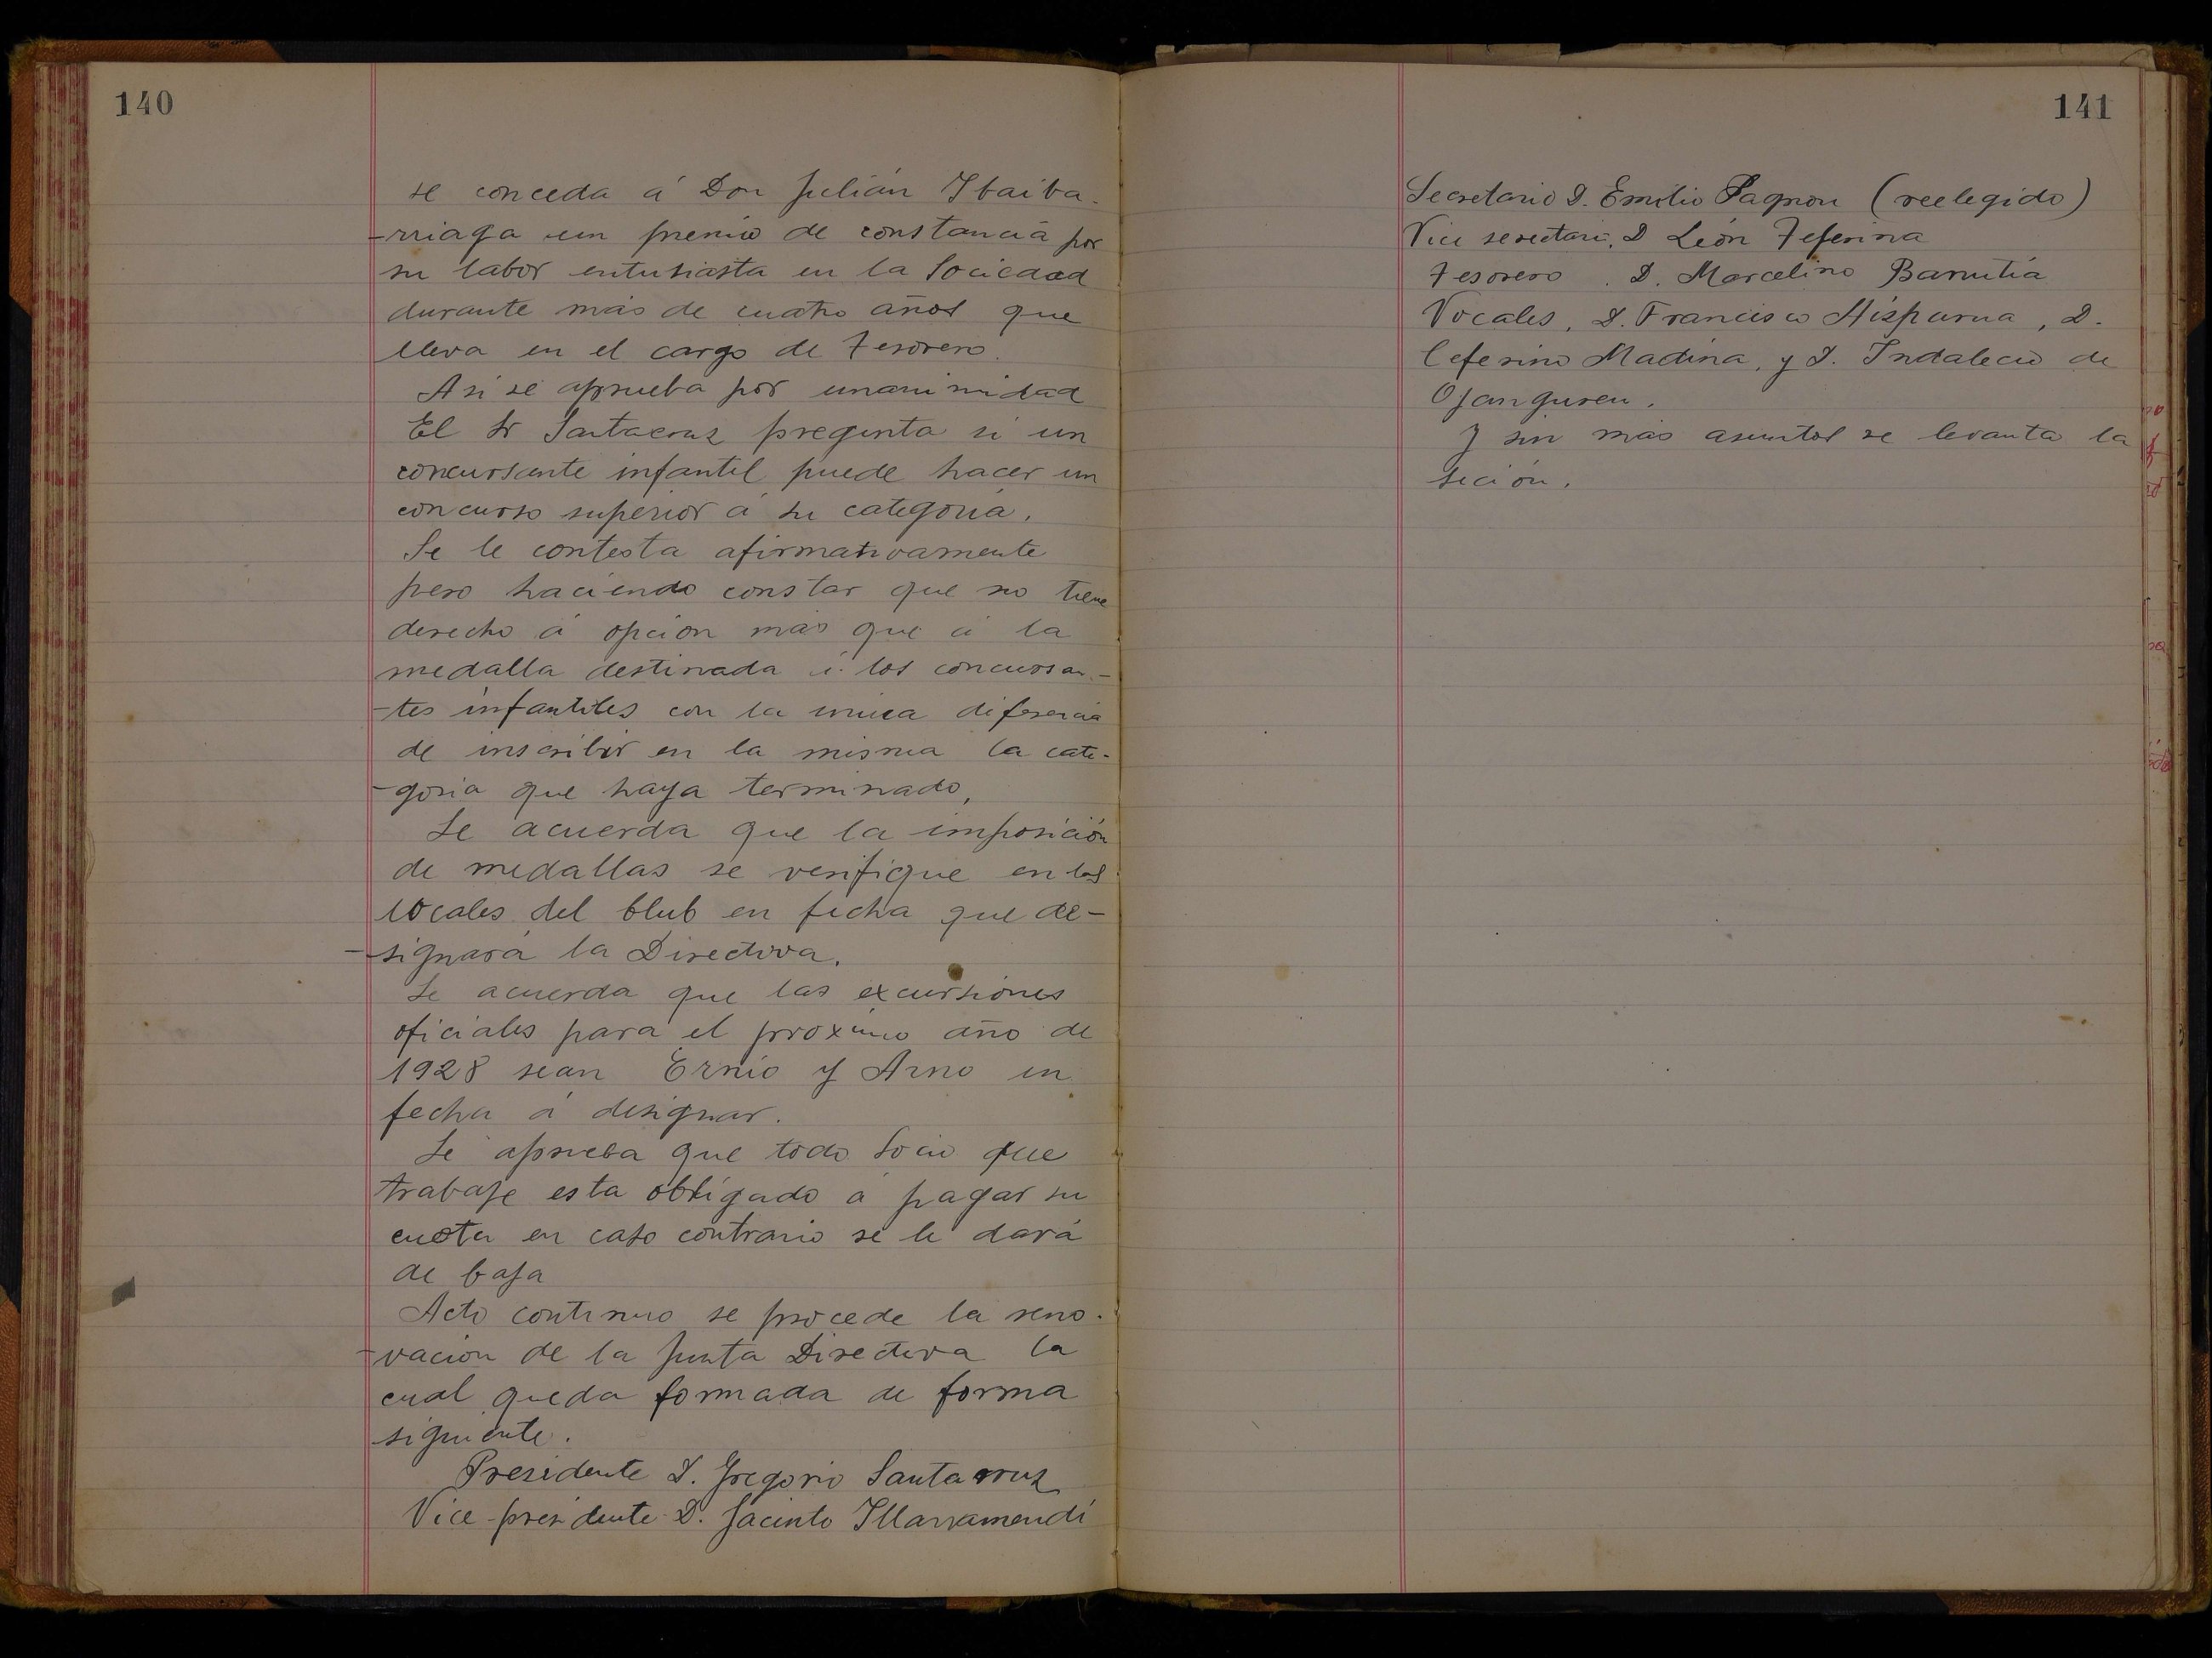 140
se conceda á Don Julián Ybaiba-
-rriaga um premio de constancia por
su labor entusiasta en la Sociedad
durante más de cuatro años que
lleva en el cargo de Tesorero.
Asi se aprueba por unanimidad
El Sr Santacruz pregunta si un
concursante infantil puede hacer un
concurso superior á su categoria.
Se le contesta afirmativamente
pero haciendo constar que no tiene
derecho á opción más que á la
medalla destinada á los concursan-
-tes infantiles con la unica diferencia
de inscribir en la misma la cate-
-goria que haya terminado,
Se acuerda que la imposición
de medallas se verifique en los
locales del Club en fecha que de-
-signará la Directiva.
Se acuerda que las excursiones
oficiales para el proximo año de
1928 sean Ernio y Arno en
fecha á designar.
Se aprueba que todo Socio que
trabaje esta obligado á pagar su
cuota en caso contrario se le dará
de baja
Acto continuo se procede la reno-
-vación de la Junta Directiva la
cual queda formada de forma
siguiente.
Presidente D. Gregorio Santacruz
Vice-presidente D. Jacinto Yllarramendi
141
Secretario D. Emilio Pagnon (reelegido)
Vice secretario, D León
Tesorero. D. Marcelino Barrutia
Vocales, D. Francisco , D.
Ceferino Madina, y D. Indalecio de
Ojanguren.
Y sin más asuntos se levanta la
seción.